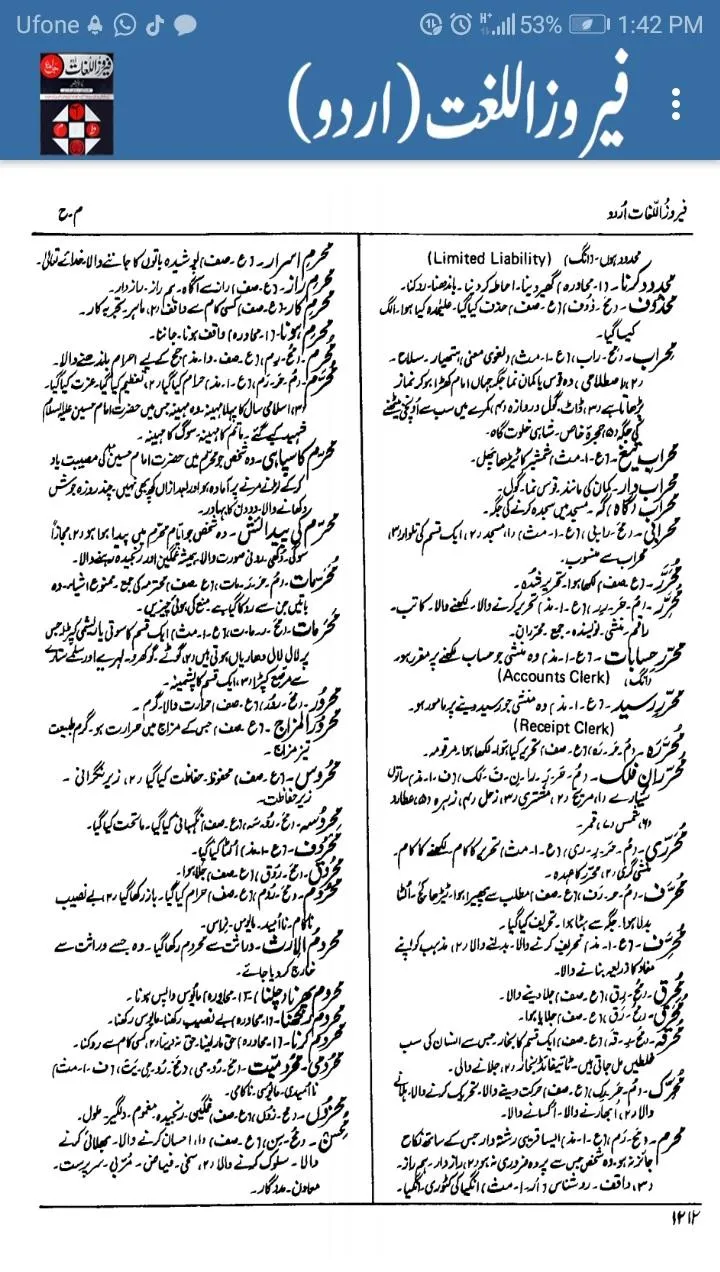 Ufone 53% 1:42 PM
فیروز اللغت (اردو)
فیروزُاللّغات اُردو
م۔ح
محدود ہوں۔ (انگ) (Limited Liability)
محدود کرنا۔ (ا۔ محاورہ) گھیر دینا۔ احاطہ کر دینا۔ باندھنا۔ روکنا۔
محذوف۔ (مَح۔ ذُوف) (ع۔ صف) حذف کیا گیا۔ علیحدہ کیا ہوا۔ الگ
کیا گیا۔
محراب۔ (مِح۔ راب) (ع۔ ا۔ مث) (لغوی معنی) ہتھیار۔ سلاح۔
(۲) (اصطلاحی) وہ قوس یا کمان نما جگہ جہاں امام کھڑا ہو کر نماز
پڑھاتا ہے (۳) ڈاٹ۔ گول دروازہ (۴) کمرے میں سب سے اونچی بیٹھنے
کی جگہ (۵) حجرۂ خاص۔ شاہی خلوت گاہ۔
محرابِ تیغ۔ (ع۔ ا۔ مث) شمشیر کا ٹیڑھا پھل۔
محراب دار۔ کمان کی مانند۔ قوس نما۔ گول۔
محراب گاہ۔ مسجد میں سجدہ کرنے کی جگہ۔
محرابی۔ (مح۔ رابی) (ع۔ ا۔ مث) (۱) مسجد (۲) ایک قسم کی تلوار (۳)
محراب سے منسوب۔
مُحرَّر۔ (ع۔ صف) لکھا ہوا۔ تحریر شدہ۔
مُحرِّر۔ (مُ۔ حَر۔ رِر) (ع۔ ا۔ مذ) تحریر کرنے والا۔ لکھنے والا۔ کاتب۔
راقم۔ منشی۔ نویسندہ۔ جمع۔ محرران۔
محررِ حسابات۔ (ع۔ ا۔ مذ) وہ منشی جو حساب لکھنے پر مقرر ہو
(انگ) (Accounts Clerk)
محررِ رسید۔ (ع۔ ا۔ مذ) وہ منشی جو رسید دینے پر مامور ہو۔
(Receipt Clerk)
مُحرَّرہ۔ (مُ۔ حَر۔ رَہ) (ع۔ صف) تحریر کیا ہوا۔ لکھا ہوا۔ مرقومہ۔
مُحرِّرانِ فلک۔ (ف۔ ا۔ مذ) ساتوں
سیارے (۱) مریخ (۲) مشتری (۳) زحل (۴) زہرہ (۵) عطارد
(۶) شمس (۷) قمر۔
مُحرّری۔ (مُ۔ حَر۔ رِ۔ ری) (ع۔ ا۔ مث) تحریر کا کام۔ لکھنے کا کام۔
منشی گری (۲) محرر کا عہدہ۔
مُحرَّف۔ (مُ۔ حَر۔ رَف) (ع۔ صف) مطلب سے پھیرا ہوا۔ ٹیڑھا۔ کج۔ اُلٹا
بدلا ہوا۔ جگہ سے ہٹا ہوا۔ تحریف کیا گیا۔
مُحرِّف۔ (ع۔ ا۔ مذ) تحریف کرنے والا۔ بدلنے والا (۲) مذہب کو اپنے
مفاد کا ذریعہ بنانے والا۔
مُحرِق۔ (مُح۔ رِق) (ع۔ صف) جلا دینے والا۔
مُحرَق۔ (مُح۔ رَق) (ع۔ صف) جلایا ہوا۔
مُحرِقہ۔ (مُح۔ رِ۔ قہ) (ع۔ صف) ایک قسم کا بخار جس سے انسان کی سب
خلطیں جل جاتی ہیں۔ ٹائیفائڈ بخار (۲) جلانے والی۔
مُحرِّک۔ (مُ۔ حَر۔ رِک) (ع۔ صف) حرکت دینے والا۔ تحریک کرنے والا۔ ہلانے
والا (۲) ابھارنے والا۔ اکسانے والا۔
محرم۔ (مَح۔ رَم) (ع۔ ا۔ مذ) ایسا قریبی رشتہ دار جس کے ساتھ نکاح
جائز نہ ہو۔ وہ شخص جس سے پردہ ضروری نہ ہو (۲) رازدار۔ ہم راز۔
(۳) واقف۔ روشناس (اُر۔ ا۔ مث) انگیا کی کٹوری۔ انگیا۔
محرمِ اسرار۔ (ع۔ صف) پوشیدہ باتوں کا جاننے والا۔ خدائے تعالیٰ۔
محرمِ راز۔ (ع۔ صف) راز سے آگاہ۔ ہم راز۔ رازدار۔
محرمِ کار۔ (ع۔ صف) کسی کام سے واقف (۲) ماہر۔ تجربہ کار۔
محرم ہونا۔ (ا۔ محاورہ) واقف ہونا۔ جاننا۔
مُحرِم۔ (مُح۔ رِم) (ع۔ صف۔ ا۔ مذ) حج کے لیے احرام باندھنے والا۔
مُحرَّم۔ (مُ۔ حَر۔ رَم) (ع۔ ا۔ مذ) حرام کیا گیا (۲) تعظیم کیا گیا۔ عزت کیا گیا۔
(۳) اسلامی سال کا پہلا مہینہ۔ وہ مہینہ جس میں حضرت امام حسین علیہ السلام
شہید کیے گئے۔ ماتم کا مہینہ۔ سوگ کا مہینہ۔
محرم کا سپاہی۔ وہ شخص جو محرم میں حضرت امام حسین کی مصیبت یاد
کر کے لڑنے مرنے پر آمادہ ہو اور بعد ازاں کچھ بھی نہیں۔ چند روزہ جوش
دکھانے والا۔ دو دن کا بہادر۔
محرم کی پیدائش۔ وہ شخص جو ایامِ محرم میں پیدا ہوا ہو (۲) مجازاً
سوگی۔ دُکھی۔ رونی صورت والا۔ ہمیشہ غمگین اور رنجیدہ رہنے والا۔
مُحرّمات۔ (مُ۔ حَر۔ رَ۔ مات) (ع۔ صف) محرمہ کی جمع۔ ممنوع اشیاء۔ وہ
باتیں جن سے روکا گیا ہے منع کی ہوئی چیزیں۔
محرمات۔ (ع۔ ا۔ مث) ایک قسم کا سوتی یا ریشمی کپڑا جس
پر لال لال دھاریاں ہوتی ہیں (۲) گوٹے۔ گوکھرو۔ لہریے اور سلمے ستارے
سے مرصع کپڑا (۳) ایک قسم کا پشمینہ۔
محرور۔ (مَح۔ رُور) (ع۔ صف) حرارت والا۔ گرم۔
محرور المزاج۔ (ع۔ صف) جس کے مزاج میں حرارت ہو۔ گرم طبیعت
تیز مزاج۔
محروس۔ (ع۔ صف) محفوظ۔ حفاظت کیا گیا (۲) زیرِ نگرانی۔
زیرِ حفاظت۔
محروسہ۔ (مَح۔ رُو۔ سَہ) (ع۔ صف) نگہبانی کیا گیا۔ ماتحت کیا گیا۔
محروف۔ (ع۔ ا۔ مذ) الٹا کیا گیا۔
محروق۔ (مَح۔ رُوق) (ع۔ صف) جلا ہوا۔
محروم۔ (مَح۔ رُوم) (ع۔ صف) حرام کیا گیا۔ باز رکھا گیا (۲) بے نصیب
ناکام۔ ناامید۔ مایوس۔ نراس۔
محروم الارث۔ وراثت سے محروم رکھا گیا۔ وہ جسے وراثت سے
خارج کر دیا جائے۔
محروم پھرنا۔ (ا۔ محاورہ) مایوس واپس ہونا۔
محروم رکھنا۔ (ا۔ محاورہ) بے نصیب رکھنا۔ مایوس رکھنا۔
محروم کرنا۔ (ا۔ محاورہ) حق مار لینا۔ حق نہ دینا (۲) کسی کام سے روکنا۔
محرومی۔ محرومیت۔ (مَح۔ رُومی) (مَح۔ رُو۔ می۔ یَت) (ف۔ ا۔ مث)
ناامیدی۔ مایوسی۔ ناکامی۔
محزون۔ (مَح۔ زُون) (ع۔ صف) غمگین۔ رنجیدہ۔ مغموم۔ دلگیر۔ ملول۔
محسن۔ (مُح۔ سِن) (ع۔ صف) (۱) احسان کرنے والا۔ بھلائی کرنے
والا۔ سلوک کرنے والا (۲) سخی۔ فیاض۔ مُربّی۔ سرپرست۔
معاون۔ مددگار۔
۱۲۱۲